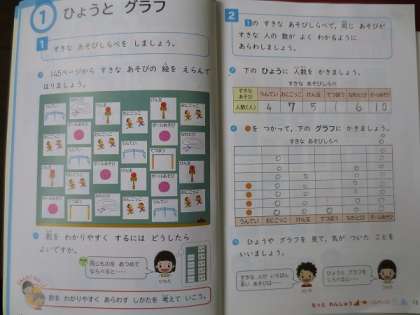 1 ひょうと グラフ
1 すきな あそびしらべを しましょう。
145ページから すきな あそびの 絵を えらんで
はりましょう。
数を わかりやすく するには どうしたら
よいですか。
同じものを あつめて
ならべると……
数を わかりやすく あらわす しかたを 考えて いこう。
2 1の すきな あそびしらべて、同じ あそびが
すきな 人の 数が よく わかるように
あらわしましょう。
下の ひょうに 人数を かきましょう。
すきな あそびしらべ
すきな
あそび
うんてい おにごっこ けん玉 てつぼう なわとび ボールあそび
人数(人) 4 7 5 6 10
を つかって、下の グラフに かきましょう。
すきな あそびしらべ
うんてい おにごっこ けん玉 てつぼう なわとび ボールあそび
ひょうや グラフを 見て、気が ついた ことを
いいましょう。
すきな 人が いちばん
多い あそびは……
ひょうと グラフを
くらべると……
もっと れんしゅう